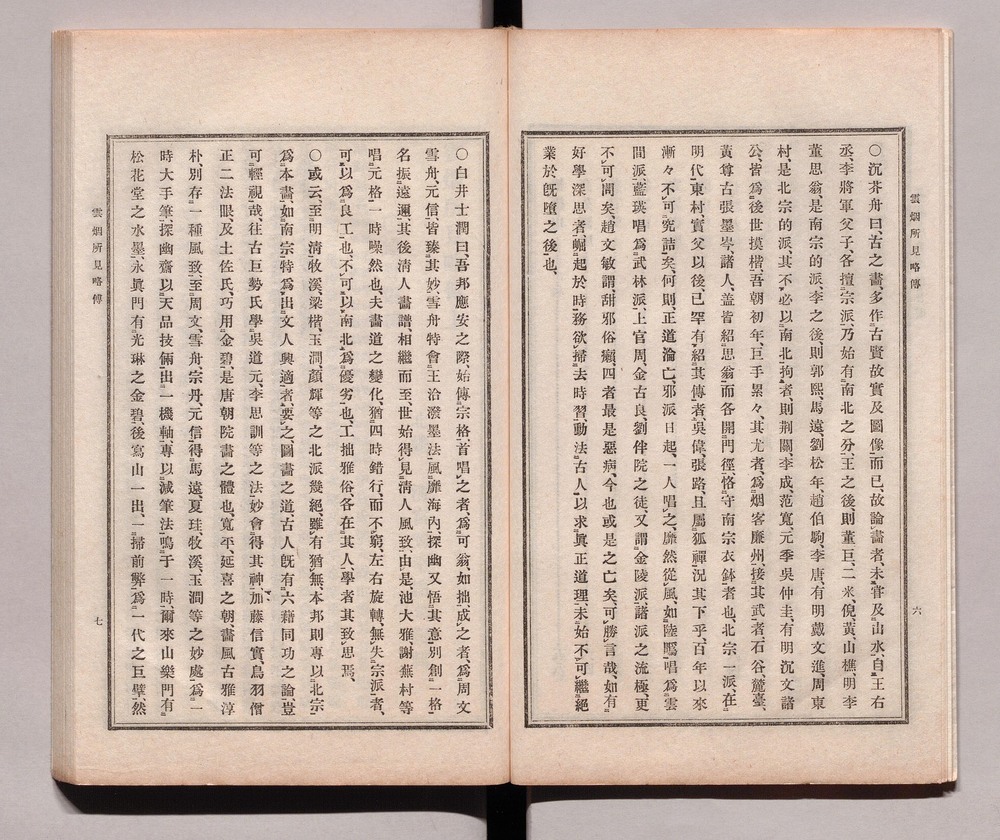 雲烟所見略傳
六
〇沉芥舟曰、古之畫、多作古賢故實及圖像而已、故論畫者、未甞及山水、自王右
丞、李將軍父子、各擅宗派、乃始有南北之分、王之後、則董巨、二米、倪、黃、山樵、明李
董思翁、是南宗的派、李之後則郭熙、馬遠、劉松年、趙伯駒、李唐、有明戴文進、周東
村、是北宗的派、其不必以南北拘者、則荆關、李成、范寬、元季吳仲圭、有明沉文諸
公、皆爲後世摸楷、吾朝初年、巨手累々、其尤者、爲烟客廉州、接其武者、石谷、麓臺、
黃尊古張墨岑諸人、盖皆紹思翁、而各開門徑、恪守南宗衣鉢者也、北宗一派、在
明代東村、實父以後、已罕有紹其傳者、吳偉、張路、且屬狐禪、況其下乎、百年以來
漸々不可究詰矣、何則、正道淪亡、邪派日起、一人唱之、靡然從風、如陸曮唱爲雲
間派、藍瑛唱爲武林派、上官周、金古良、劉伴院之徒、又謂金陵派、諸派之流極、更
不可問矣、趙文敏謂甜邪俗癩四者、最是惡病、今也或是之亡矣、可勝言哉、如有
好學深思者、崛起於時、務欲掃去時習、動法古人、以求眞正道理、未始不可繼絕
業於既墮之後也、
〇白井士潤曰、吾邦應安之際、始傳宗格首唱之者、爲可翁、如拙成之者、爲周文
雪舟、元信、皆臻其妙、雪舟特會王洽潑墨法、風靡海內、探幽又悟其意、別創一格、
名振遠邇、其後淸人畫譜、相繼而至、世始得見淸人風致、由是池大雅謝蕪村等
唱元格、一時噪然也、夫畫道之變化、猶四時錯行、而不窮、左右旋轉、無失宗派者、
可以爲良工也、不可以南北爲優劣也、工拙雅俗、各在其人、學者其致思焉、
〇或云、至明淸牧溪、梁楷、玉澗、顏輝等之北派幾絕、雖有猶無、本邦則專以北宗
爲本畫、如南宗特爲出文人興適者、要之、圖畫之道、古人既有六藉同功之論、豈
可輕視哉、往古巨勢氏學吳道元、李思訓等之法、妙會得其神、加藤信實、鳥羽僧
正二法眼、及土佐氏、巧用金碧、是唐朝院畫之體也、寬平、延喜之朝、畫風古雅淳
朴、別存一種風致、至周文、雪舟、宗丹、元信、得馬遠、夏珪、牧溪、玉澗等之妙處、爲一
時大手筆、探幽齋以天品技倆、出一機軸、專以減筆法、鳴于一時、爾來山樂門有
松花堂之水墨、永眞門有光琳之金碧、後寫山一出、一掃前弊、爲一代之巨擘、然
雲烟所見略傳
七